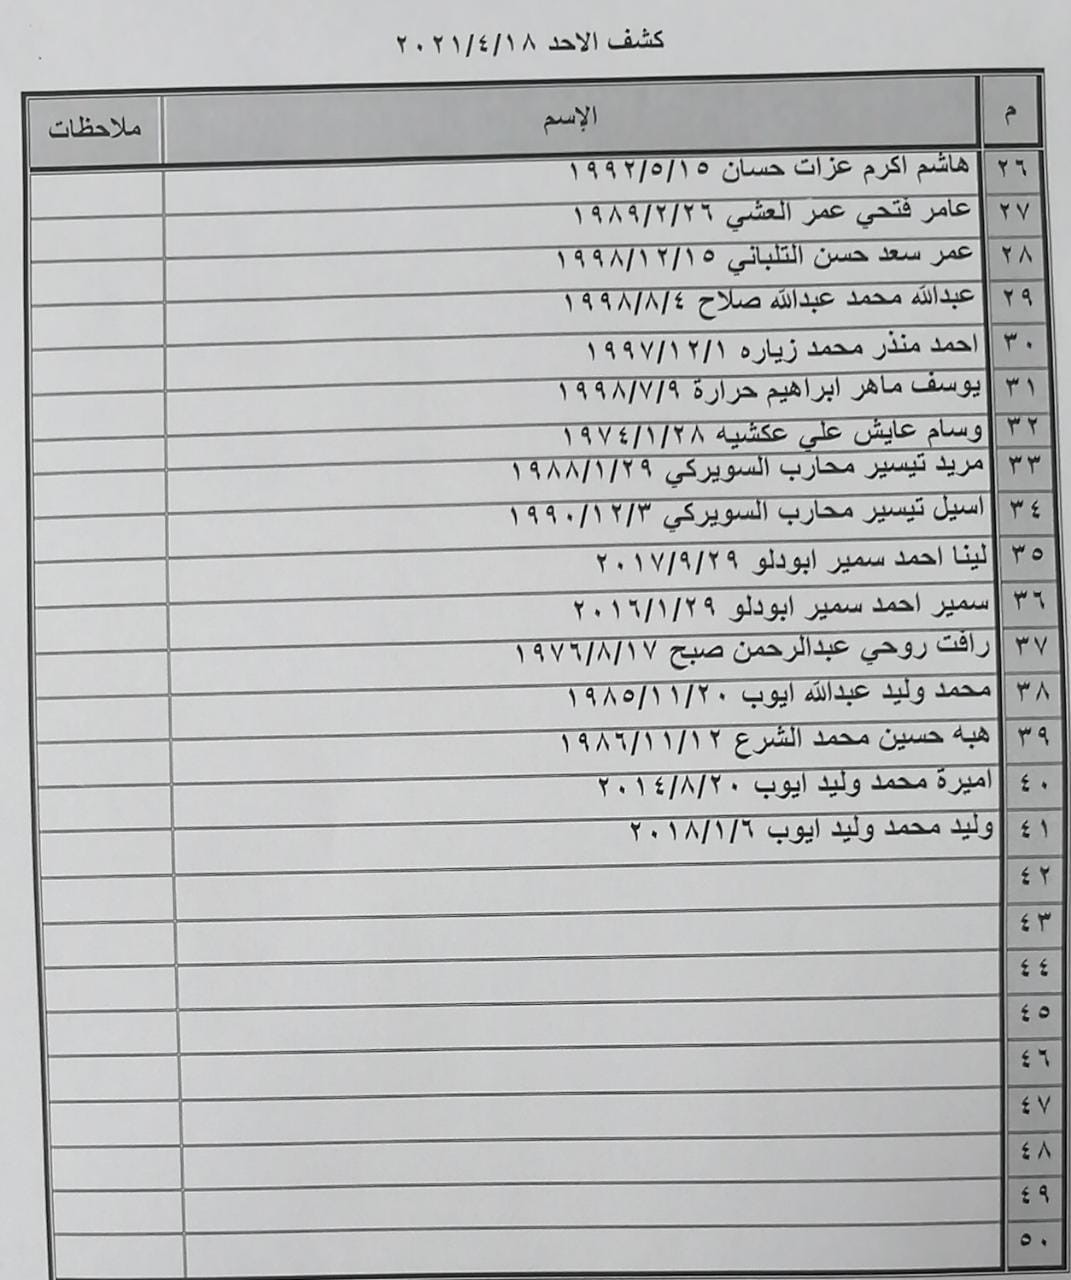 كشف الاحد ٢٠٢١/٤/١٨
م الإسم ملاحظات
٢٦ هاشم اكرم عزات حسان ١٩٩٢/٥/١٥
٢٧ عامر فتحي عمر العشي ١٩٨٩/٢/٢٦
٢٨ عمر سعد حسن التلباني ١٩٩٨/١٢/١٥
٢٩ عبدالله محمد عبدالله صلاح ١٩٩٨/٨/٤
٣٠ احمد منذر محمد زياره ١٩٩٧/١٢/١
٣١ يوسف ماهر ابراهيم حرارة ١٩٩٨/٧/٩
٣٢ وسام عايش علي عكشيه ١٩٧٤/١/٢٨
٣٣ مريد تيسير محارب السويركي ١٩٨٨/١/٢٩
٣٤ اسيل تيسير محارب السويركي ١٩٩٠/١٢/٣
٣٥ لينا احمد سمير ابودلو ٢٠١٧/٩/٢٩
٣٦ سمير احمد سمير ابودلو ٢٠١٦/١/٢٩
٣٧ رافت روحي عبدالرحمن صبح ١٩٧٦/٨/١٧
٣٨ محمد وليد عبدالله ايوب ١٩٨٥/١١/٢٠
٣٩ هبه حسين محمد الشرع ١٩٨٦/١١/١٢
٤٠ اميرة محمد وليد ايوب ٢٠١٤/٨/٢٠
٤١ وليد محمد وليد ايوب ٢٠١٨/١/٦
٤٢
٤٣
٤٤
٤٥
٤٦
٤٧
٤٨
٤٩
٥٠